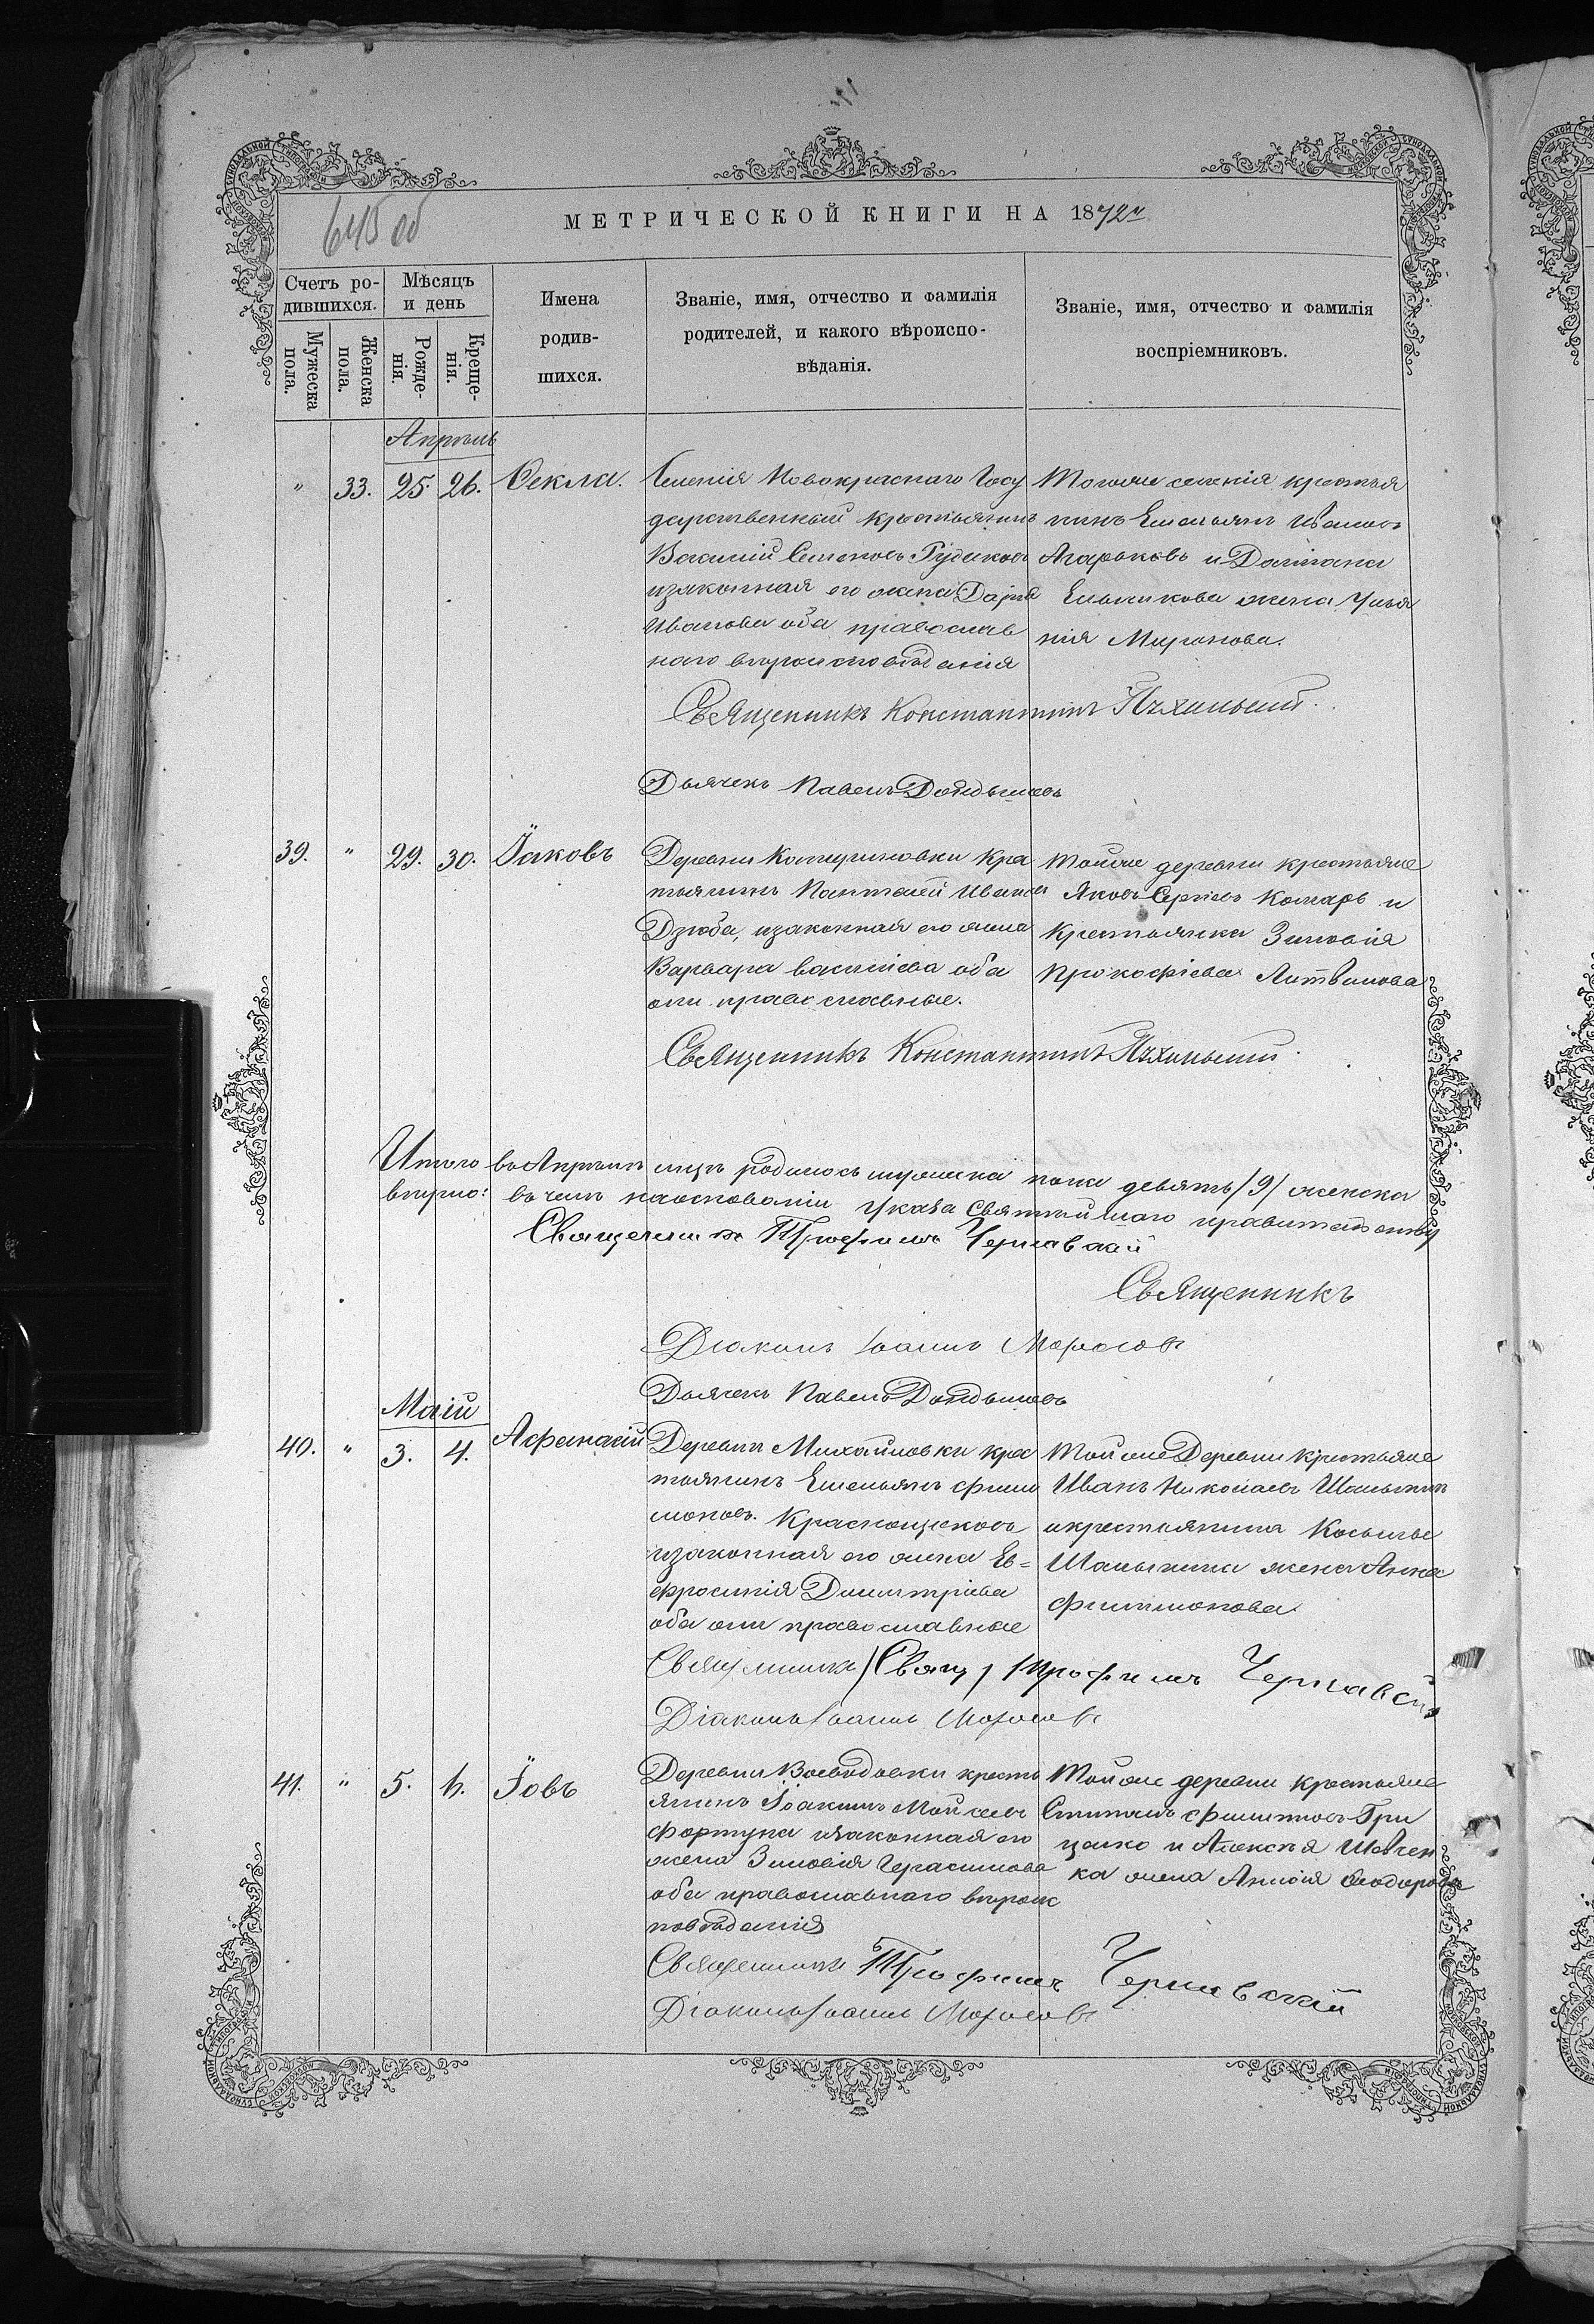 645 об
МЕТРИЧЕСКОЙ КНИГИ НА 1872 г
Счетъ ро-
дившихся.
Мѣсяцъ
и день
Имена
родив-
шихся.
Званіе, имя, отчество и фамилія
родителей, и какого вѣроиспо-
вѣданія.
Званіе, имя, отчество и фамилія
воспріемниковъ.
Мужеска
пола.
Женска
пола.
Рожде-
нія.
Креще-
нія.
Апрѣль
" 33. 25. 26. Ѳекла.
Селенія Новокраснаго Госу
дарственный крестьянинъ
Василій Семеновъ Гудаковъ
изаконная его жена Дарія
Иванова оба православ
наго вѣроисповѣданія
Тогоже селенія крестья
нинъ Емельянъ Ивановъ
Агарьковъ и Даміана
Ельникова жена Улья
нія Миронова.
Священникъ Константинъ
Дьячекъ Павелъ
39. " 29. 30. Іаковъ
Деревни Катериновки Кре
стьянинъ Пантелей Ивановъ
Дзюба, изаконная его жена
Варвара Василіева оба
они православные.
Тойже деревни крестьяне
Яковъ Сергіевъ Комаръ и
Крестьянка Зиновія
Прокофіева Литвинова
Священникъ Константинъ
Итого въ Апрѣлѣ мцѣ родилось мужеска пола девять /9/ женска
вѣрно: въ чемъ наосновании Указа Святѣйшаго правительству
Священникъ Трофимъ Чернявский
Священникъ
Діаконъ Іоаннъ Моросовъ
Дьячекъ Павелъ
Маій
40. " 3. 4. Афанасій
Деревни Михайловки кре
стьянинъ Емельянъ Фили
моновъ Краснощековъ
изаконная его жена Ев=
фросинія Димитріева
оба они православные
Тойже Деревни Крестьяне
Иванъ Николаевъ Шалыгинъ
икрестьянина Косьмы
Шалыгина жена Анна
Филимонова
Священникъ /Свящ/ Трофимъ Чернавскій
Діаконъ Іоаннъ Моросовъ
41. " 5. 6. Іовъ
Деревни Воеводовки кресть
янинъ Іоакимъ Мойсеевъ
Фортуна изаконная его
жена Зиновія Герасимова
оба православнаго вѣроис
повѣданія
Тойже деревни крестьяне
Гри
ценко и Алексѣя Шевчен
ка жена Ѳеодорова
Священникъ Трофимъ Чернавскій
Діаконъ Іоаннъ Моросовъ